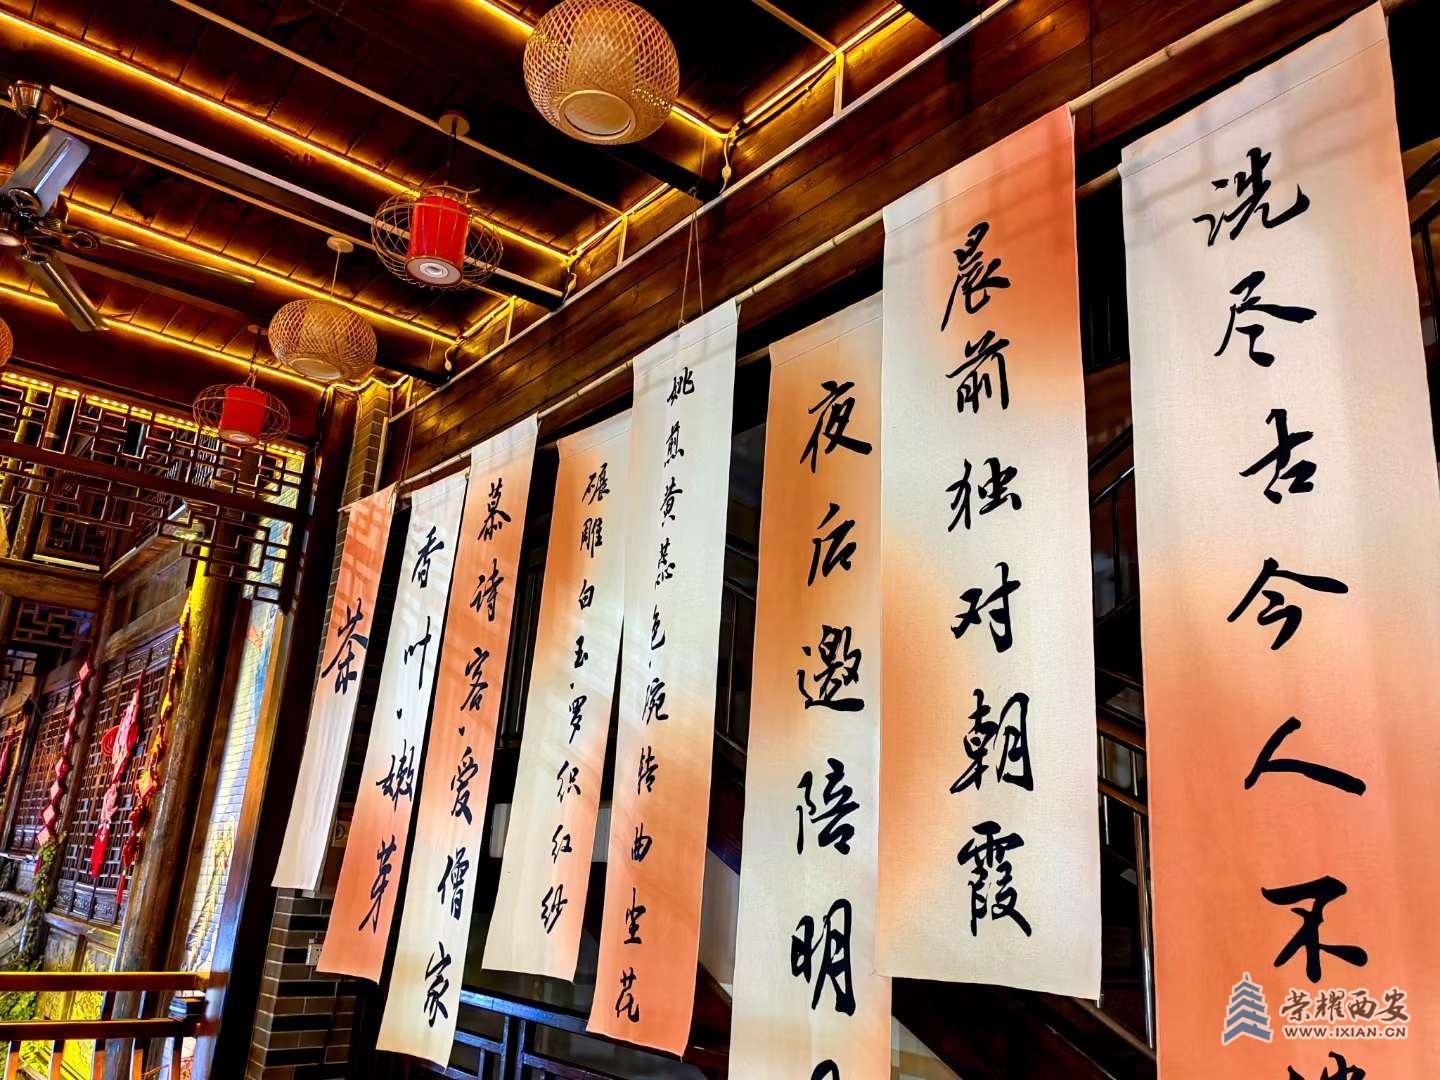 茶
香叶·嫩芽
慕诗客·爱僧家
碾雕白玉·罗织红纱
姚煎黄蕊色·碗转曲尘花
夜后邀陪明
晨前独对朝霞
洗尽古今人不
荣耀西安
WWW.IXIAN.CN